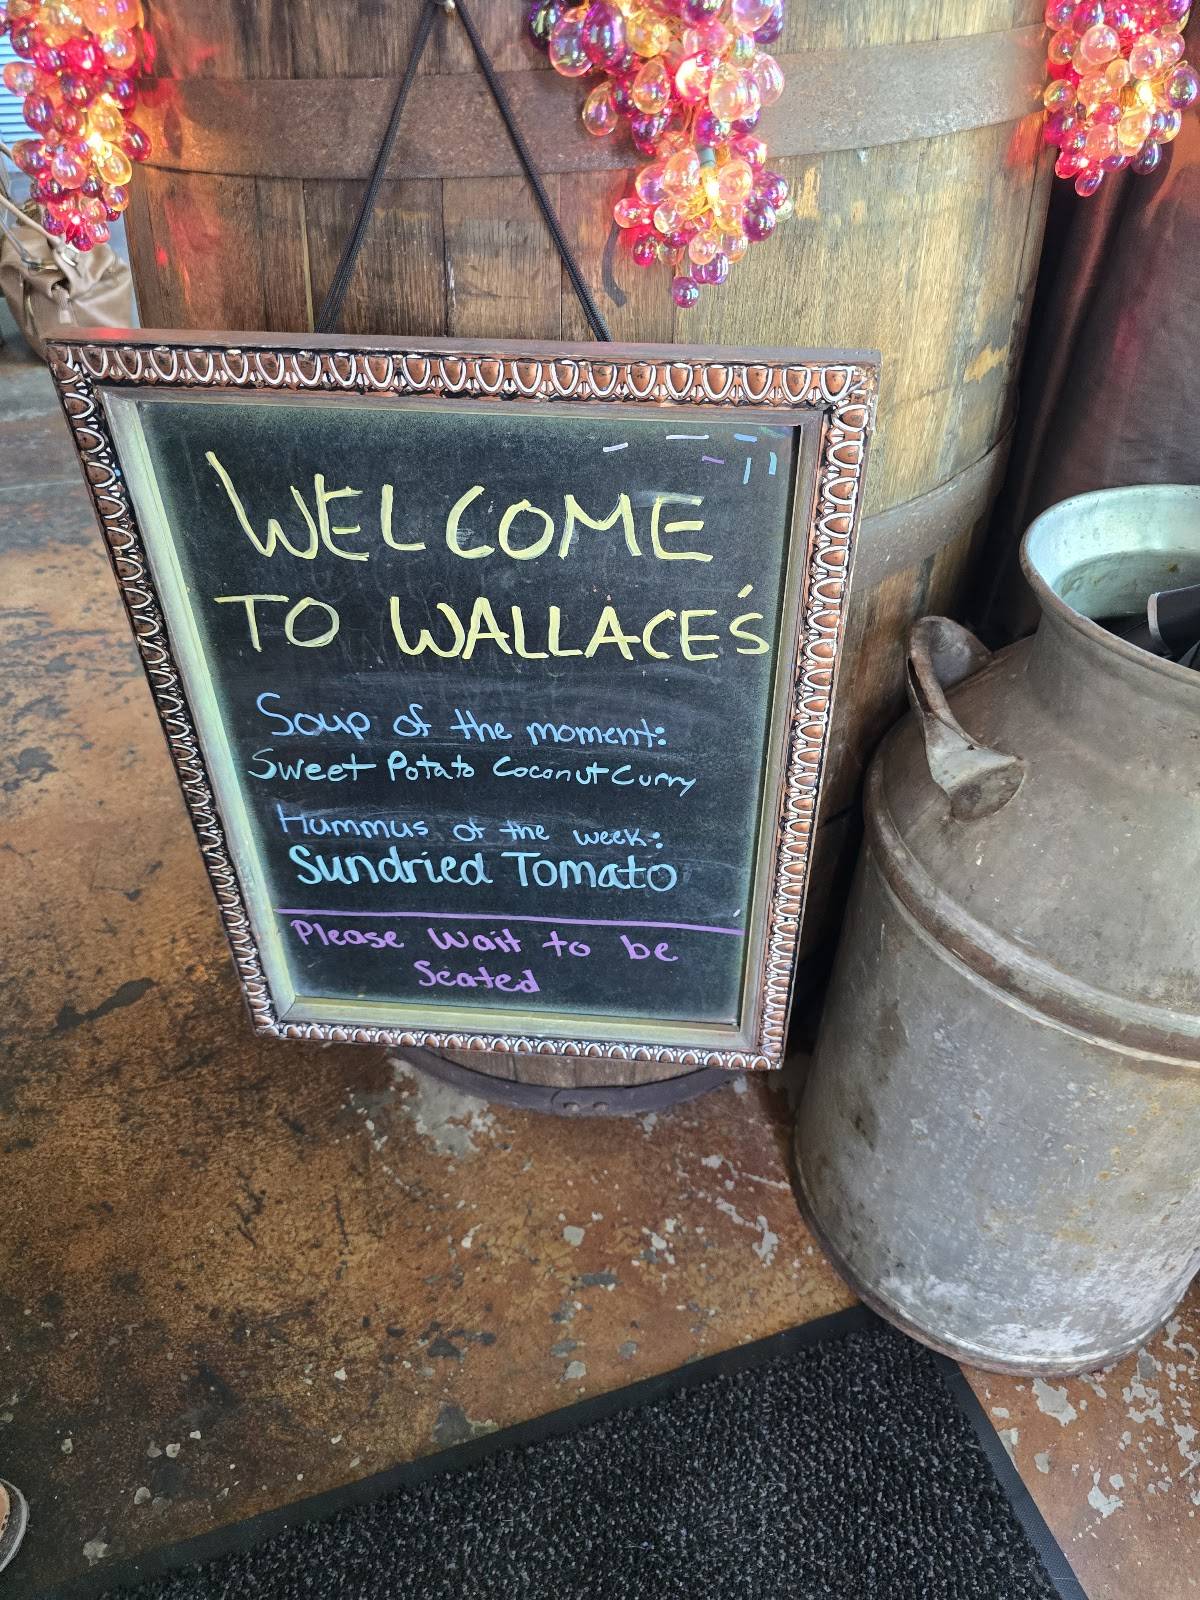 WELCOME
TO WALLACE'S
Soup of the moment:
Sweet Potato Coconut Curry
Hummus of the week:
Sundried Tomato
Please Wait to be
Seated